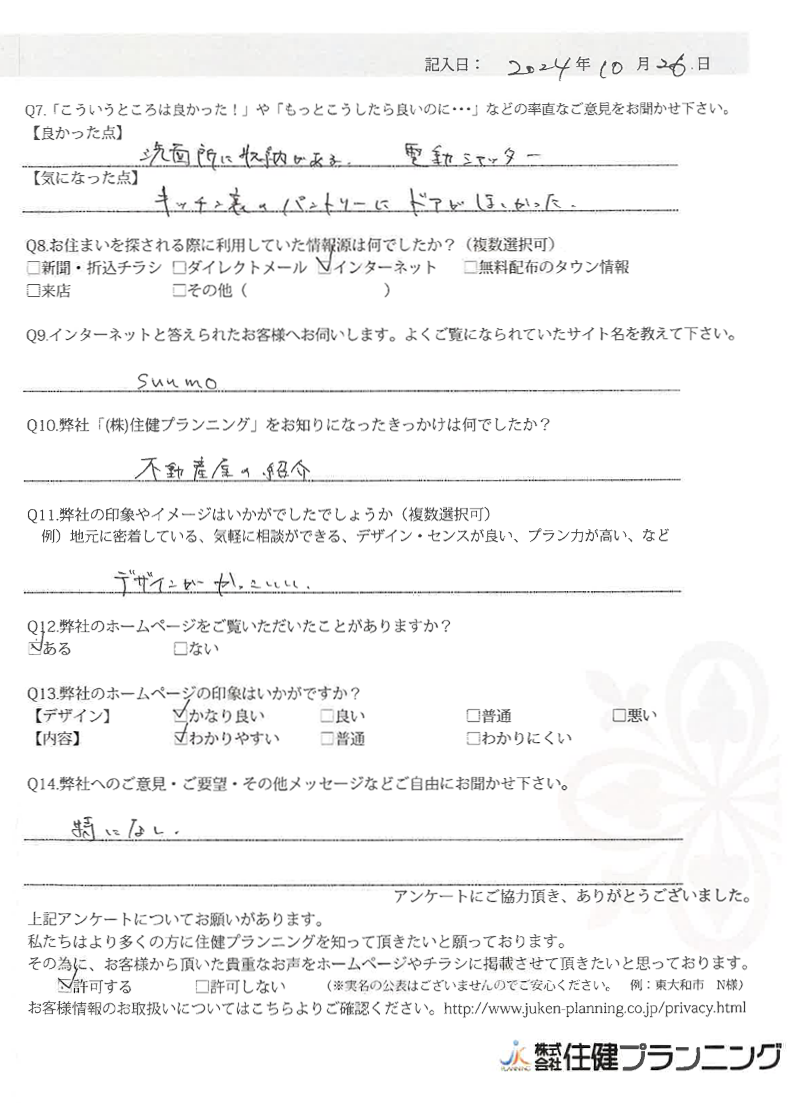 記入日： 2024年 10月 26日
Q7.「こういうところは良かった！」や「もっとこうしたら良いのに・・・」などの率直なご意見をお聞かせ下さい。
【良かった点】
洗面所に収納がある。 電動シャッター
【気になった点】
キッチン裏のパントリーにドアがほしかった。
Q8.お住まいを探される際に利用していた情報源は何でしたか？（複数選択可）
□新聞・折込チラシ □ダイレクトメール ☑インターネット □無料配布のタウン情報
□来店 □その他（ ）
Q9.インターネットと答えられたお客様へお伺いします。よくご覧になられていたサイト名を教えて下さい。
suumo
Q10.弊社「(株)住健プランニング」をお知りになったきっかけは何でしたか？
不動産屋の紹介
Q11.弊社の印象やイメージはいかがでしたでしょうか（複数選択可）
例）地元に密着している、気軽に相談ができる、デザイン・センスが良い、プラン力が高い、など
デザインがかっこいい。
Q12.弊社のホームページをご覧いただいたことがありますか？
☑ある □ない
Q13.弊社のホームページの印象はいかがですか？
【デザイン】 ☑かなり良い □良い □普通 □悪い
【内容】 ☑わかりやすい □普通 □わかりにくい
Q14.弊社へのご意見・ご要望・その他メッセージなどご自由にお聞かせ下さい。
特になし。
アンケートにご協力頂き、ありがとうございました。
上記アンケートについてお願いがあります。
私たちはより多くの方に住健プランニングを知って頂きたいと願っております。
その為に、お客様から頂いた貴重なお声をホームページやチラシに掲載させて頂きたいと思っております。
☑許可する □許可しない （※実名の公表はございませんのでご安心ください。 例：東大和市 N様）
お客様情報のお取扱いについてはこちらよりご確認ください。http://www.juken-planning.co.jp/privacy.html
JK PLANNING 株式会社住健プランニング